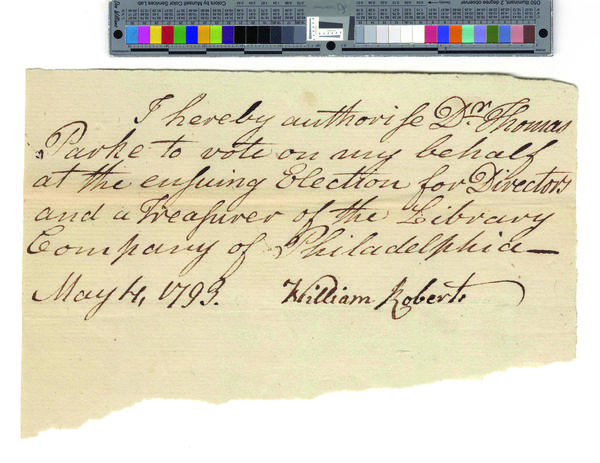 I hereby authorise Dr. Thomas
Parke to vote on my behalf
at the ensuing Election for Directors
and a Treasurer of the Library
Company of Philadelphia—
May 4, 1793. William Roberts